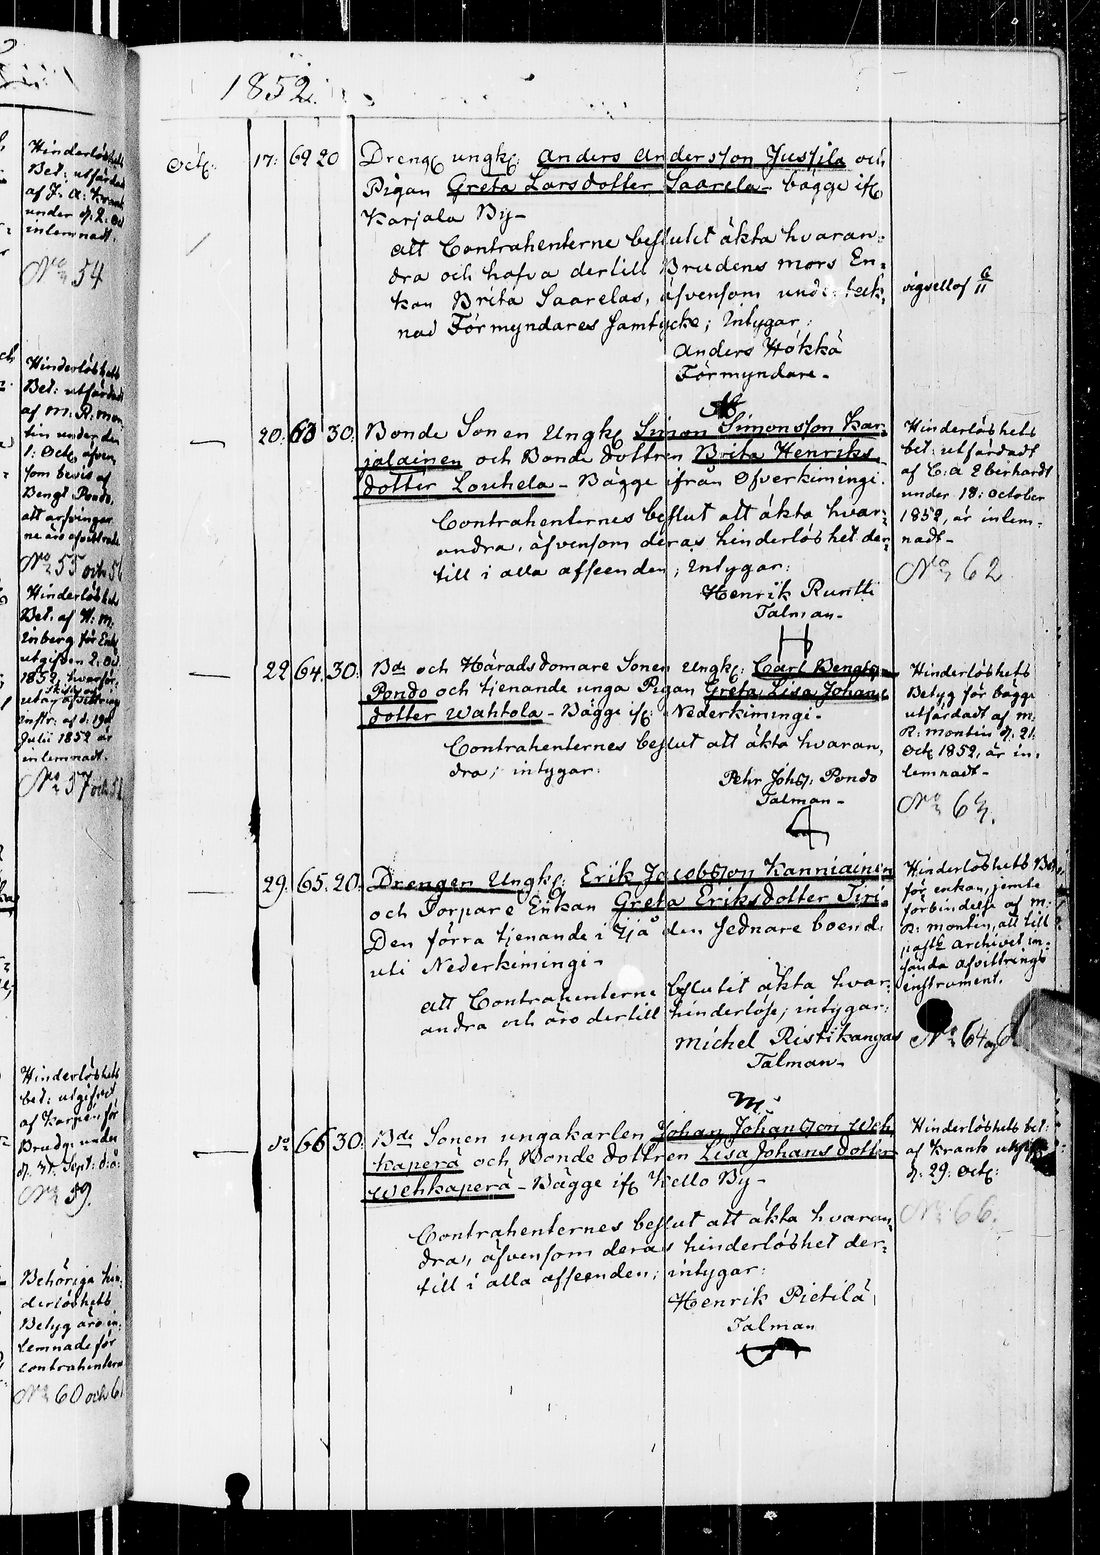 Hinderlöshets
Bet: utfärdadt
af J. A. Krank
under d. 2. Oct
inlemnadt.
No 54
Hinderlöshets
Bet: utfärdadt
af M. R. Mon
tin under den
1: Octr äfven
som bevis af
Bengt Pondo,
att arfvingar
ne äro afvittrade
No 55 och 56
Hinderlöshets
Bet. af H: M.
Enberg för Enk
utgifven 2. Oct
1852, hvarför
Instr. af d: 19de
Julii 1852 är
inlemnadt.
No 57 och 58
Hinderlöshets
bet: utgifvet
af Karpén för
Brudg: under
d. 27. Sept: d: å:
No 59.
Behöriga hin
derlöshets
Betyg äro in
lemnade för
contrahenterne
No 60 och 61
1852.
Octr. 17: 62 20 Drengn ungkn: Anders Andersson Jussila och
Pigan Greta Larsdotter Saarela – bägge ifrn
Karjala By –
att Contrahenterne beslutit äkta hvaran-
dra och hafva dertill Brudens mors En-
kan Brita Saarelas, äfvensom underteck-
nad Förmyndares samtycke; Intygar:
Anders Hökkä
Förmyndare –
vigsellof 6/11
20. 63 30. Bonde Sonen Ungkn Simon Simonsson Kar-
jalainen och Bonde dottren Brita Henriks-
dotter Louhela – Bägge ifrån Öfverkimingi.
Contrahenternes beslut att äkta hvar-
andra, äfvensom deras hinderlöshet der-
till i alla afseenden; Intygar:
Henrik Runtti
Talman –
Hinderlöshets
bet: utfärdadt
af C. A Eberhardt
under 18: October
1852, är inlem-
nadt –
No 62
22. 64. 30. Bde och Häradsdomare Sonen Ungkn: Carl Bengtss
Pondo och tjenande unga Pigan Greta Lisa Johans
dotter Wahtola – Bägge ifrn: Nederkimingi –
Contrahenternes beslut att äkta hvaran-
dra; intygar:
Pehr Johss: Pondo
Talman –
Hinderlöshets
Betyg för bägge
utfärdadt af M:
R: Montin d: 21:
Octr 1852, är in-
lemnadt –
No 63.
29. 65. 20. Drengen Ungkn: Erik Jacobsson Kanniainen
och Torpare Enkan Greta Eriksdotter Tiri.
Den förra tjenande i Ijå den sednare boend.
uti Nederkimingi –
att Contrahenterne beslutit äkta hvar-
andra och äro dertill hinderlöse; intygar:
Michel Ristikangas
Talman –
Hinderlöshets Bet
för enkan, jemte
förbindelse af M:
R: Montin, att till
Archivet in-
sända afvittrings
instrument.
No 64
66 30. Bde Sonen ungakarlen Johan Johansson Weh
kaperä och Bonde dottren Lisa Johans dotter
Wehkaperä – Bägge ifrn Kello By –
Contrahenternes beslut att äkta hvaran-
dra, äfvensom deras hinderlöshet der-
till i alla afseenden; intygar:
Henrik Pietilä
Talman
Hinderlöshets bet:
af Krank
d. 29. Octr:
No 66.